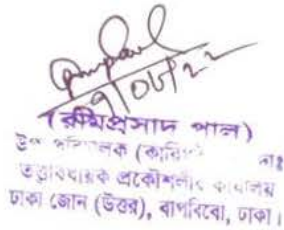 ৭/০৮/২২
(রামপ্রসাদ পাল)
উপ পরিচালক (কারিগরি) নাঃ
তত্ত্বাবধায়ক প্রকৌশলীর কার্যালয়
ঢাকা জোন (উত্তর), বাপবিবো, ঢাকা।